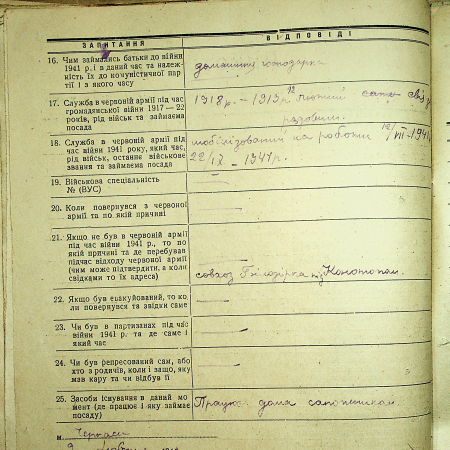 ЗАПИТАННЯ ВІДПОВІДІ
16. Чим займались батьки до війни
1941 р. і в даний час та належ-
ність їх до комуністичної пар-
тії і з якого часу
домашня господарка
17. Служба в червоній армії під час
громадянської війни 1917—22
років, рід військ та займаєма
посада
1918 р. — 1919 р.
рядовим.
18. Служба в червоній армії під
час війни 1941 року, який час,
рід військ, останнє військове
звання та займаєма посада
мобілізований на роботи 12/VII-1941
22/IX — 1941 р.
19. Військова спеціальність
№ (ВУС)
—
20. Коли повернувся з червоної
армії та по якій причині
—
21. Якщо не був в червоній армії
під час війни 1941 р., то по
якій причині та де перебував
підчас відходу червоної армії
(чим може підтвердити, а коли
свідками то їх адреса)
совхоз під Конотопом.
22. Якщо був евакуйований, то ко-
ли повернувся та звідки саме
—
23. Чи був в партизанах під час
війни 1941 р. та де саме і
який час
—
24. Чи був репресований сам, або
хто з родичів, коли і защо, яку
мав кару та чи відбув її
—
25. Засоби існування в даний мо-
мент (де працює і яку займає
посаду)
Працює дома сапожником.
м. Черкаси